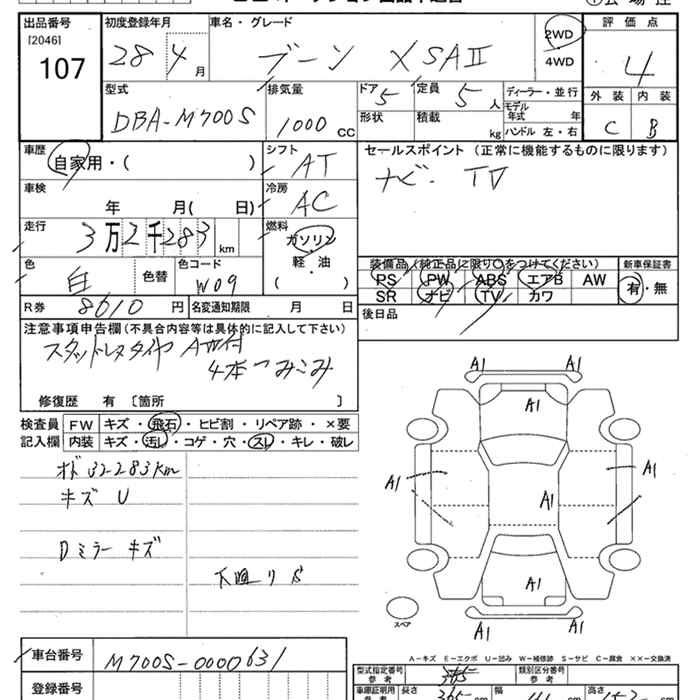 出品番号
[2046]
107
初度登録年月
28 4 月
車名・グレード
ブーン XSAⅡ
2WD
4WD
評価点
4
外装 内装
C B
型式
DBA-M700S
排気量
1000 CC
ドア 5
定員 5 人
形状
積載 kg
ディーラー・並行
モデル年式 年
ハンドル 左・右
車歴
自家用・( )
シフト
AT
セールスポイント (正常に機能するものに限ります)
ナビ・TV
車検
年 月( 日)
冷房
AC
走行
3万2千283 km
燃料
ガソリン
軽・油
( )
色
白
色替
色コード
W09
装備品(純正品に限り○をつけてください)
PS PW ABS エアB AW
SR ナビ TV カワ
新車保証書
有・無
R券 8610 円
名変通知期限 月 日
後日品
注意事項申告欄(不具合内容等は具体的に記入して下さい)
スタッドレスタイヤ AW付
4本つみこみ
修復歴 有〔箇所 〕
検査員記入欄
FW キズ・飛石・ヒビ割・リペア跡・×要
内装 キズ・汚レ・コゲ・穴・スレ・キレ・破レ
オド 32283km
キズ U
Dミラー キズ
下廻りS
A1 A1
A1
A1 A1
A1
A1
A1 A1
スペア
A-キズ E-エクボ U-凹み W-補修跡 S-サビ C-腐食 ××-交換済
車台番号
M700S-0000631
登録番号
型式指定番号
参考
類別区分番号
参考
車庫証明用
参考
長さ 365 cm
幅
高さ